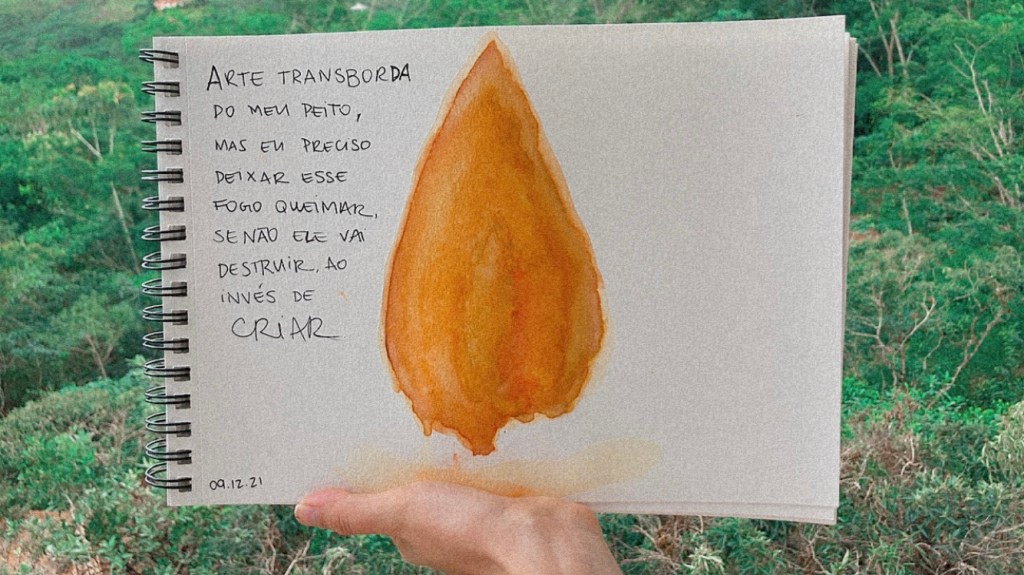 ARTE TRANSBORDA
DO MEU PEITO,
MAS EU PRECISO
DEIXAR ESSE
FOGO QUEIMAR,
SENÃO ELE VAI
DESTRUIR, AO
INVÉS DE
CRIAR
09.12.21